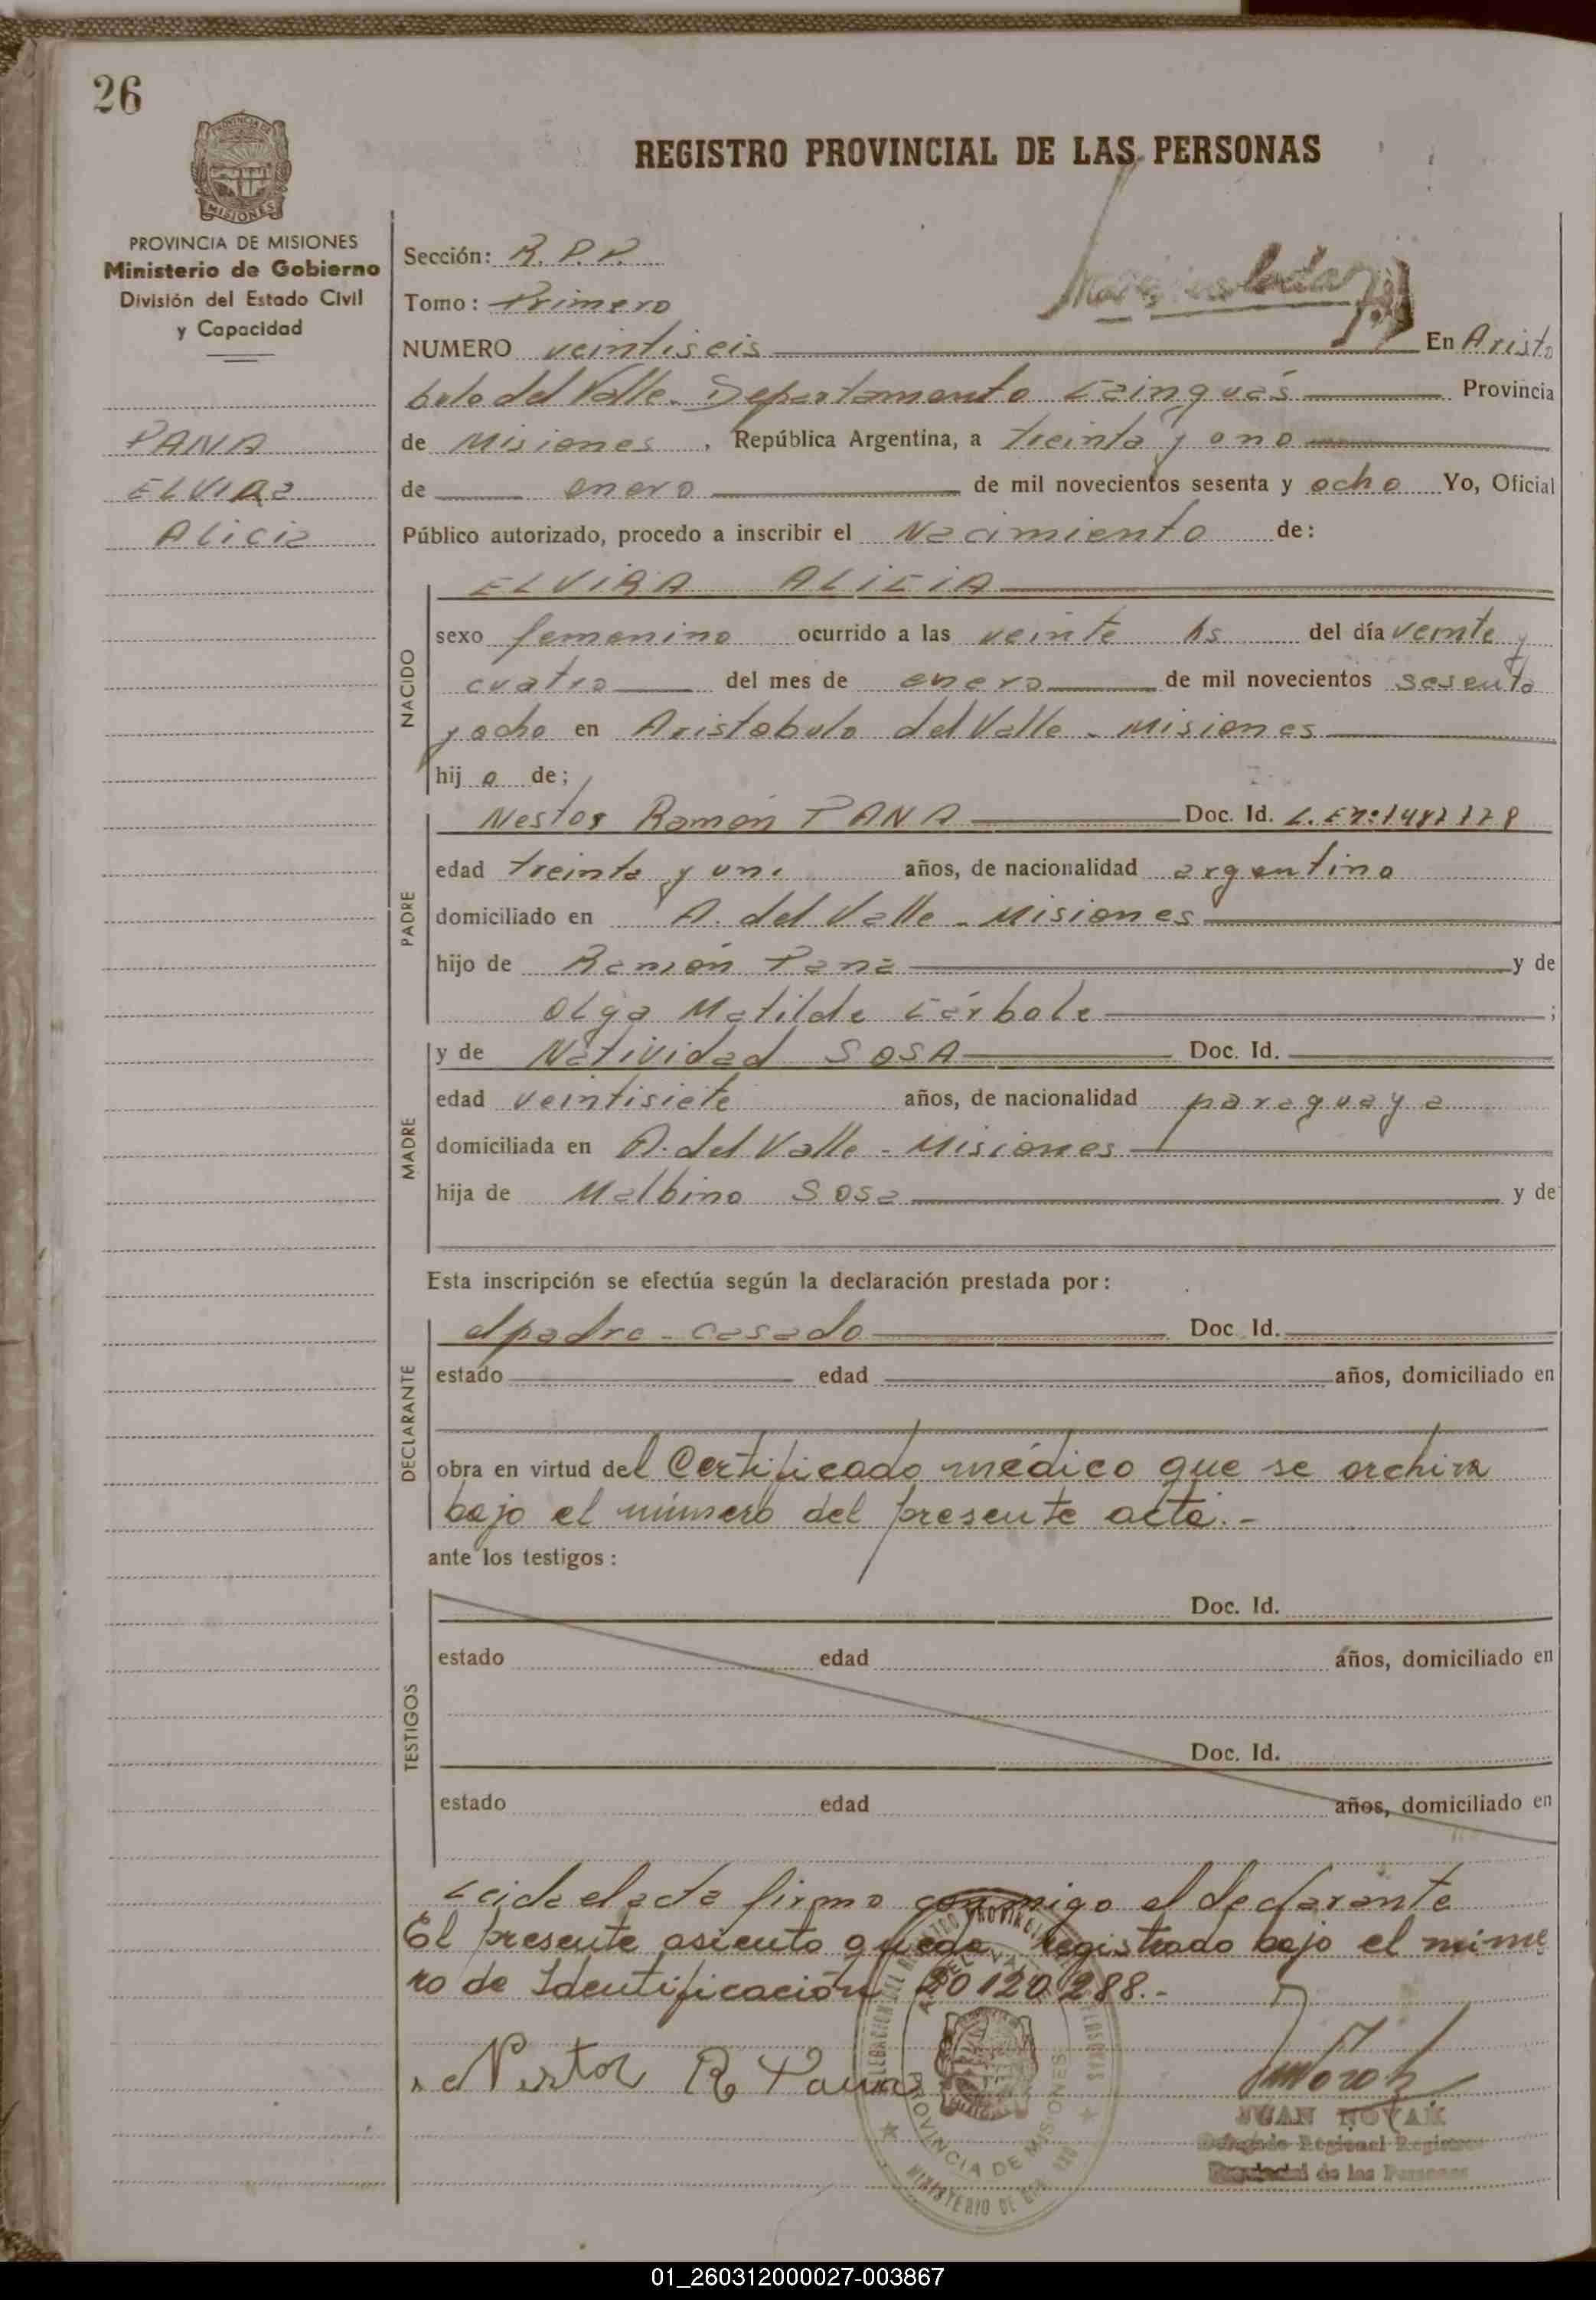 26
REGISTRO PROVINCIAL DE LAS PERSONAS
PROVINCIA DE
MISIONES
PROVINCIA DE MISIONES
Ministerio de Gobierno
División del Estado Civil
y Capacidad
PANA
ELVIRa
Alicia
Sección: R. P. P.
Tomo: Primero
NUMERO veintiseis En Aristo
bulo del Valle. Departamento Cainguás Provincia
de Misiones, República Argentina, a treinta y uno
de enero de mil novecientos sesenta y ocho Yo, Oficial
Público autorizado, procedo a inscribir el Nacimiento de:
NACIDO
ELVIRA ALICIA
sexo femenino ocurrido a las veinte hs del día veinte y
cuatro del mes de enero de mil novecientos sesenta
y ocho en Aristobulo del Valle - Misiones
hij a de;
PADRE
Nestor Ramón PANA Doc. Id.
edad treinta y uno años, de nacionalidad argentina
domiciliado en A. del Valle - Misiones
hijo de Ramón Pana y de
Olga Matilde Cárbole ;
MADRE
y de Natividad SOSA Doc. Id.
edad veintisiete años, de nacionalidad paraguaya
domiciliada en A. del Valle - Misiones
hija de Malbino Sosa y de
Esta inscripción se efectúa según la declaración prestada por:
DECLARANTE
el padre - casado Doc Id.
estado edad años, domiciliado en
obra en virtud del Certificado médico que se archiva
bajo el número del presente acta.-
ante los testigos:
TESTIGOS
Doc. Id.
estado edad años, domiciliado en
Doc. Id.
estado edad años, domiciliado en
Leida el acta firmo conmigo el declarante
El presente asiento queda registrado bajo el núme
ro de Identificación 20120288.-
Nestor R Pana
JUAN NOVAK
Delegado Regional Registro
Provincial de las Personas
PROVINCIA DE MISIONES
MINISTERIO DE
01_260312000027-003867